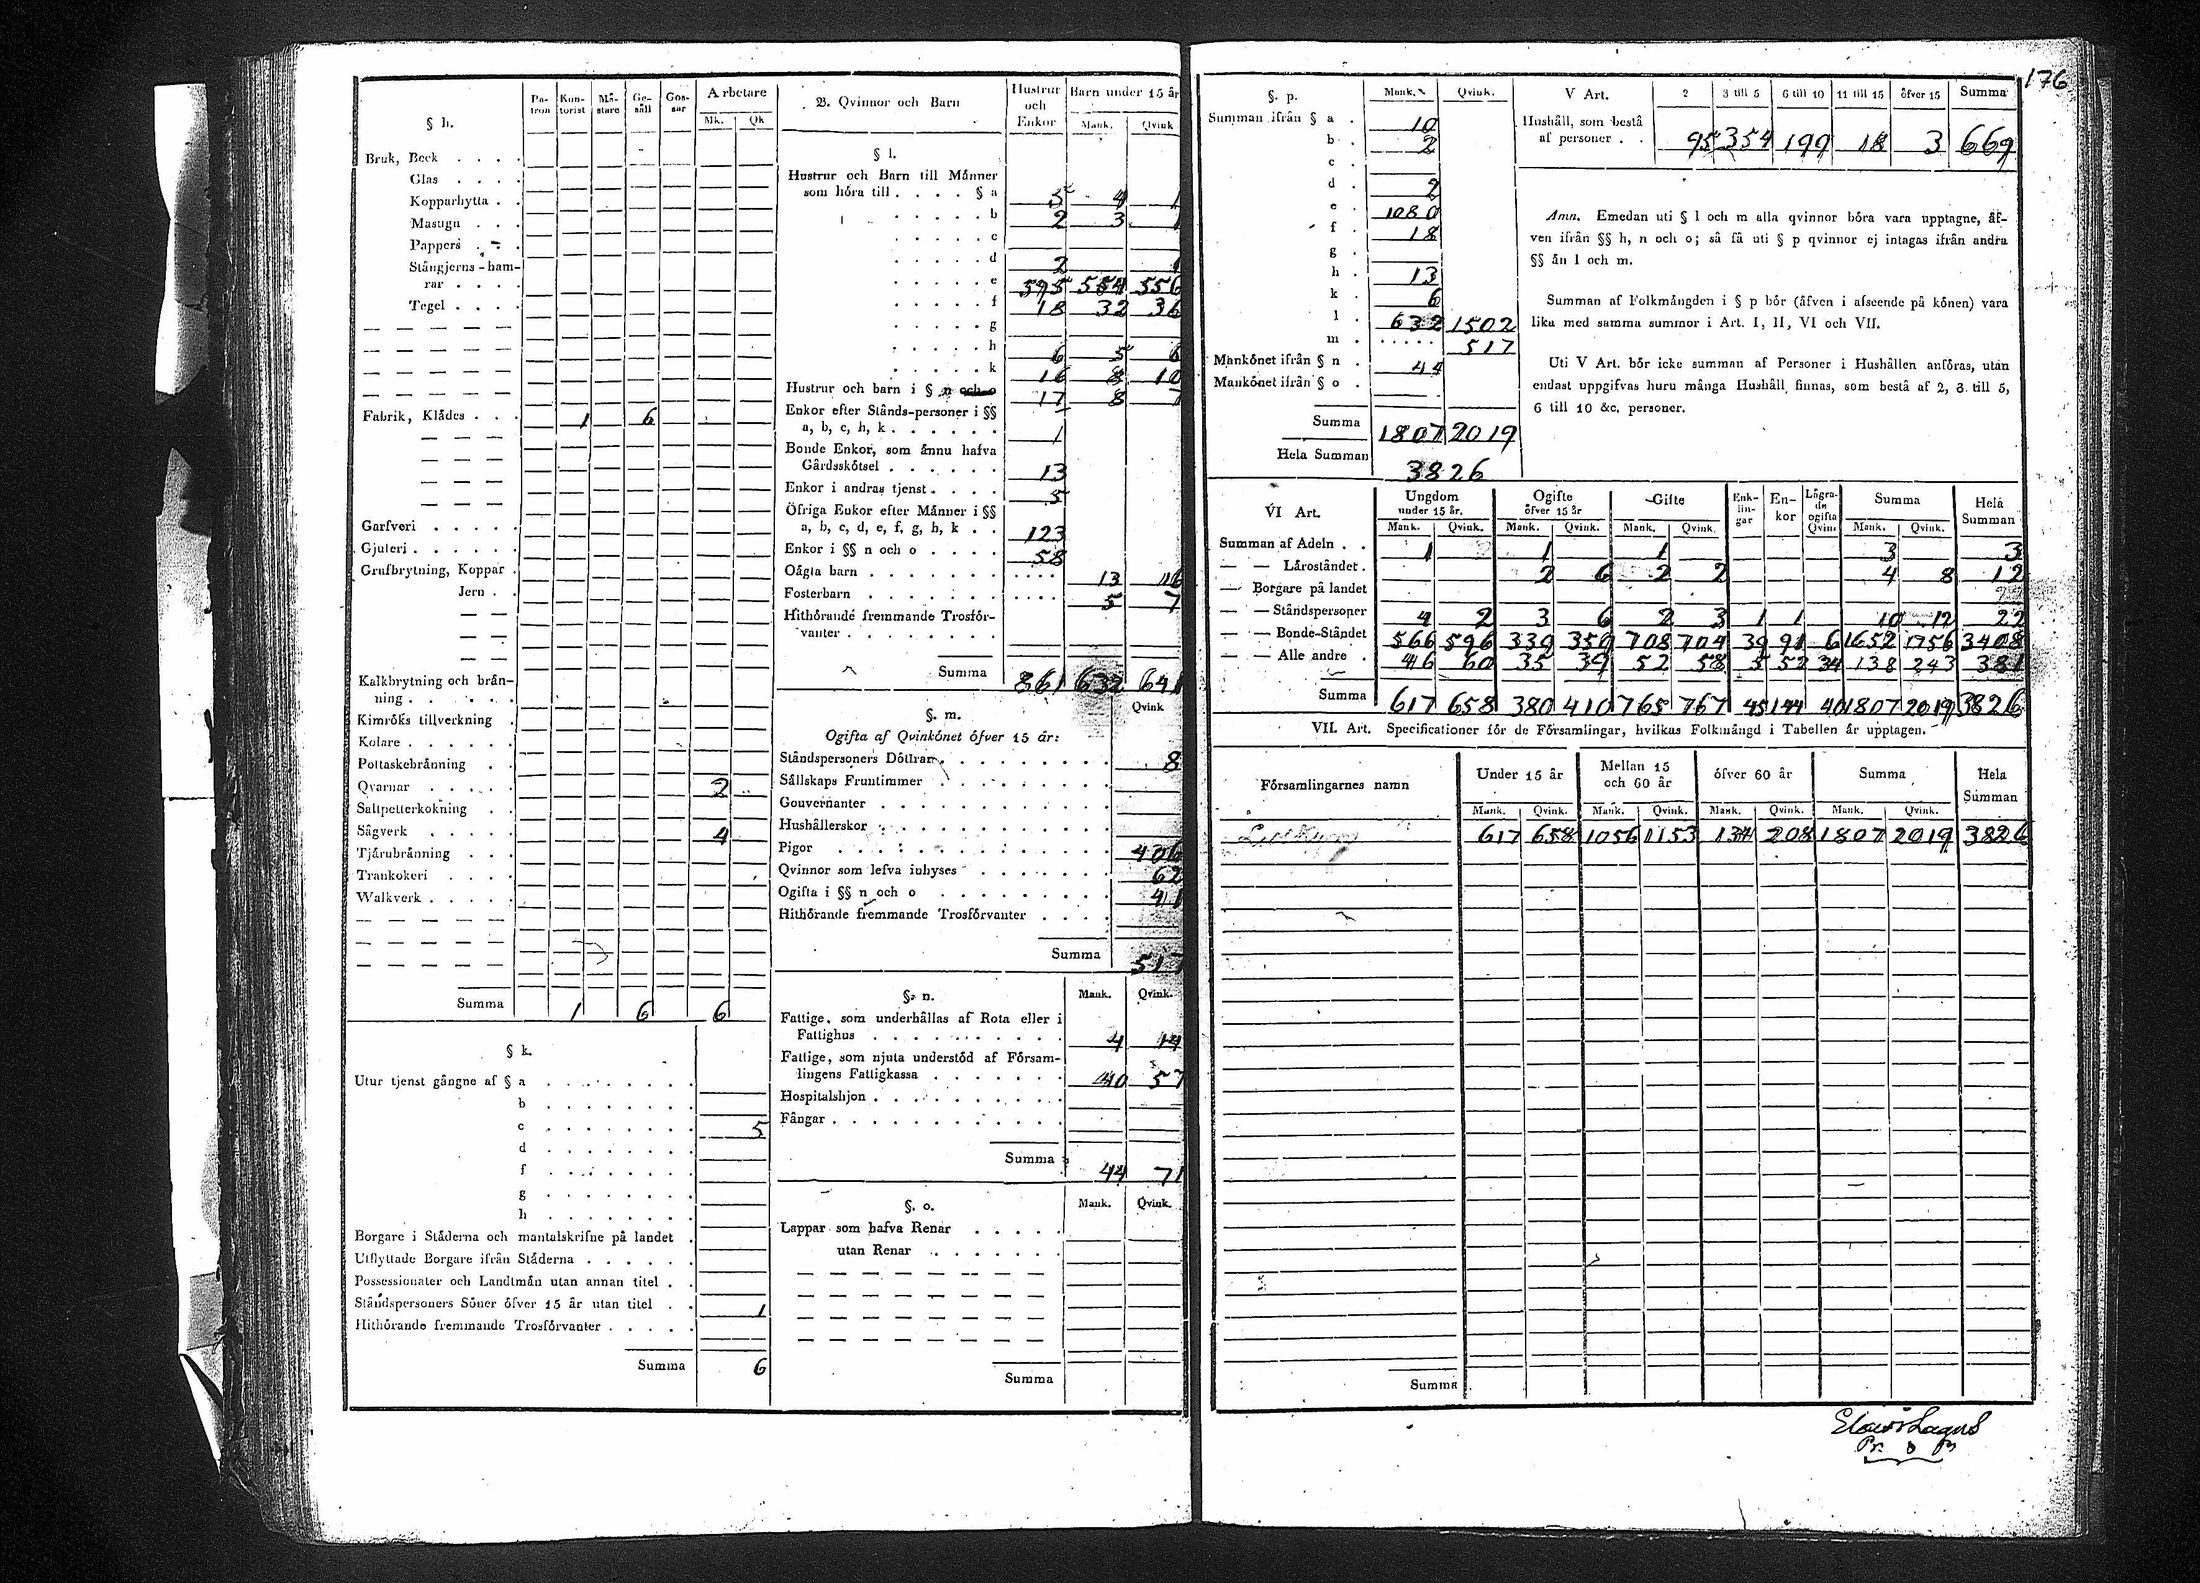 176
§ h. Pa-tron Kon-torist Mä-stare Ge-säll Gos-sar Arbetare Mk. Qk
Bruk, Beck . . . .
Glas . . . .
Kopparhytta . .
Masugn . . .
Pappers . . .
Stångjerns-ham-
rar . . . .
Tegel . . . .
Fabrik, Klådes . . . 1 6
Garfveri . . . . .
Gjuteri . . . . . .
Grufbrytning, Koppar .
Jern . .
Kalkbrytning och brån-
ning . . . . . .
Kimröks tillverkning .
Kolare . . . . . .
Pottaskebränning . .
Qvarnar . . . . . 2
Saltpetterkokning . .
Sågverk . . . . . 4
Tjårubränning . . .
Trankokeri . . . .
Walkverk . . . . .
Summa 1 6 6
§ k.
Utur tjenst gångne af § a . . . . . . . .
b . . . . . . . .
c . . . . . . . . 5
d . . . . . . . .
f . . . . . . . .
g . . . . . . . .
h . . . . . . . .
Borgare i Ståderna och mantalskrifne på landet .
Utflyttade Borgare ifrån Ståderna . . . . . .
Possessionater och Landtmån utan annan titel . .
Ståndspersoners Söner öfver 15 år utan titel . . 1
Hithörande fremmande Trosförvanter . . . . .
Summa 6
B. Qvinnor och Barn Hustrur och Enkor Barn under 15 år Mank. Qvink
§ l.
Hustrur och Barn till Månner
som höra till . . . . § a 5 4 1
. . . . . b 2 3 1
. . . . . c
. . . . . d 2 1
. . . . . e 595 554 556
. . . . . f 18 32 36
. . . . . g
. . . . . h 6 5 6
. . . . . k 16 8 10
Hustrur och barn i § n och o 17 8 7
Enkor efter Stånds-personer i §§
a, b, c, h, k . . . . . . 1
Bonde Enkor, som ännu hafva
Gårdsskötsel . . . . . . 13
Enkor i andras tjenst . . . . 5
Öfriga Enkor efter Månner i §§
a, b, c, d, e, f, g, h, k . . 123
Enkor i §§ n och o . . . . 58
Oågta barn . . . . . . . . . . . 13 16
Fosterbarn . . . . . . . . . . . 5 7
Hithörande fremmande Trosför-
vanter . . . . . . . .
Summa 861 632 641
§. m. Qvink
Ogifta af Qvinkönet öfver 15 år:
Ståndspersoners Döttrar . . . . . . . . . 8
Sållskaps Fruntimmer . . . . . . . . . .
Gouvernanter . . . . . . . . . . . .
Hushållerskor . . . . . . . . . . . .
Pigor . . . . . . . . . . . 406
Qvinnor som lefva inhyses . . . . . . . 62
Ogifta i §§ n och o . . . . . . . . . 41
Hithörande fremmande Trosförvanter . . . .
Summa 517
§. n. Mank. Qvink.
Fattige, som underhållas af Rota eller i
Fattighus . . . . . . . . . . 4 14
Fattige, som njuta understöd af Försam-
lingens Fattigkassa . . . . . . . 40 57
Hospitalshjon . . . . . . . . . .
Fångar . . . . . . . . . . . .
Summa 44 71
§. o. Mank. Qvink.
Lappar som hafva Renar . . . . .
utan Renar . . . . . . .
Summa
§. p. Mank. Qvink.
Summan ifrån § a . 10
b . 2
c .
d . 2
e . 1080
f . 18
g .
h . 13
k . 6
l . 632 1502
m . . . . . . 517
Mankönet ifrån § n . 44
Mankönet ifrån § o .
Summa 1807 2019
Hela Summan 3826
V Art. 2 3 till 5 6 till 10 11 till 15 öfver 15 Summa
Hushåll, som bestå
af personer . . 95 354 199 18 3 669
Anm. Emedan uti § l och m alla qvinnor böra vara upptagne, åf-
ven ifrån §§ h, n och o; så få uti § p qvinnor ej intagas ifrån andra
§§ ån l och m.
Summan af Folkmångden i § p bör (åfven i afseende på könen) vara
lika med samma summor i Art. I, II, VI och VII.
Uti V Art. bör icke summan af Personer i Hushållen anföras, utan
endast uppgifvas huru många Hushåll finnas, som bestå af 2, 3 till 5,
6 till 10 &c. personer.
VI Art. Ungdom under 15 år. Ogifte öfver 15 år Gifte Enk-lin-gar En-kor Lägra-de ogifta Qvin Summa Hela Summan
Mank. Qvink. Mank. Qvink. Mank. Qvink. Mank. Qvink.
Summan af Adeln . . 1 1 1 3 3
— — Låroståndet . 2 6 2 2 4 8 12
— — Borgare på landet
— — Ståndspersoner 4 2 3 6 2 3 1 1 10 12 22
— — Bonde-Ståndet 566 596 339 359 708 704 39 91 6 1652 1756 3408
— — Alle andre . 46 60 35 39 52 58 5 52 34 138 243 381
Summa 617 658 380 410 765 767 45 144 40 1807 2019 3826
VII. Art. Specificationer för de Församlingar, hvilkas Folkmångd i Tabellen är upptagen.
Församlingarnes namn Under 15 år Mellan 15 och 60 år öfver 60 år Summa Hela Summan
Mank. Qvink. Mank. Qvink. Mank. Qvink. Mank. Qvink.
617 658 1056 1153 134 208 1807 2019 3826
Summa